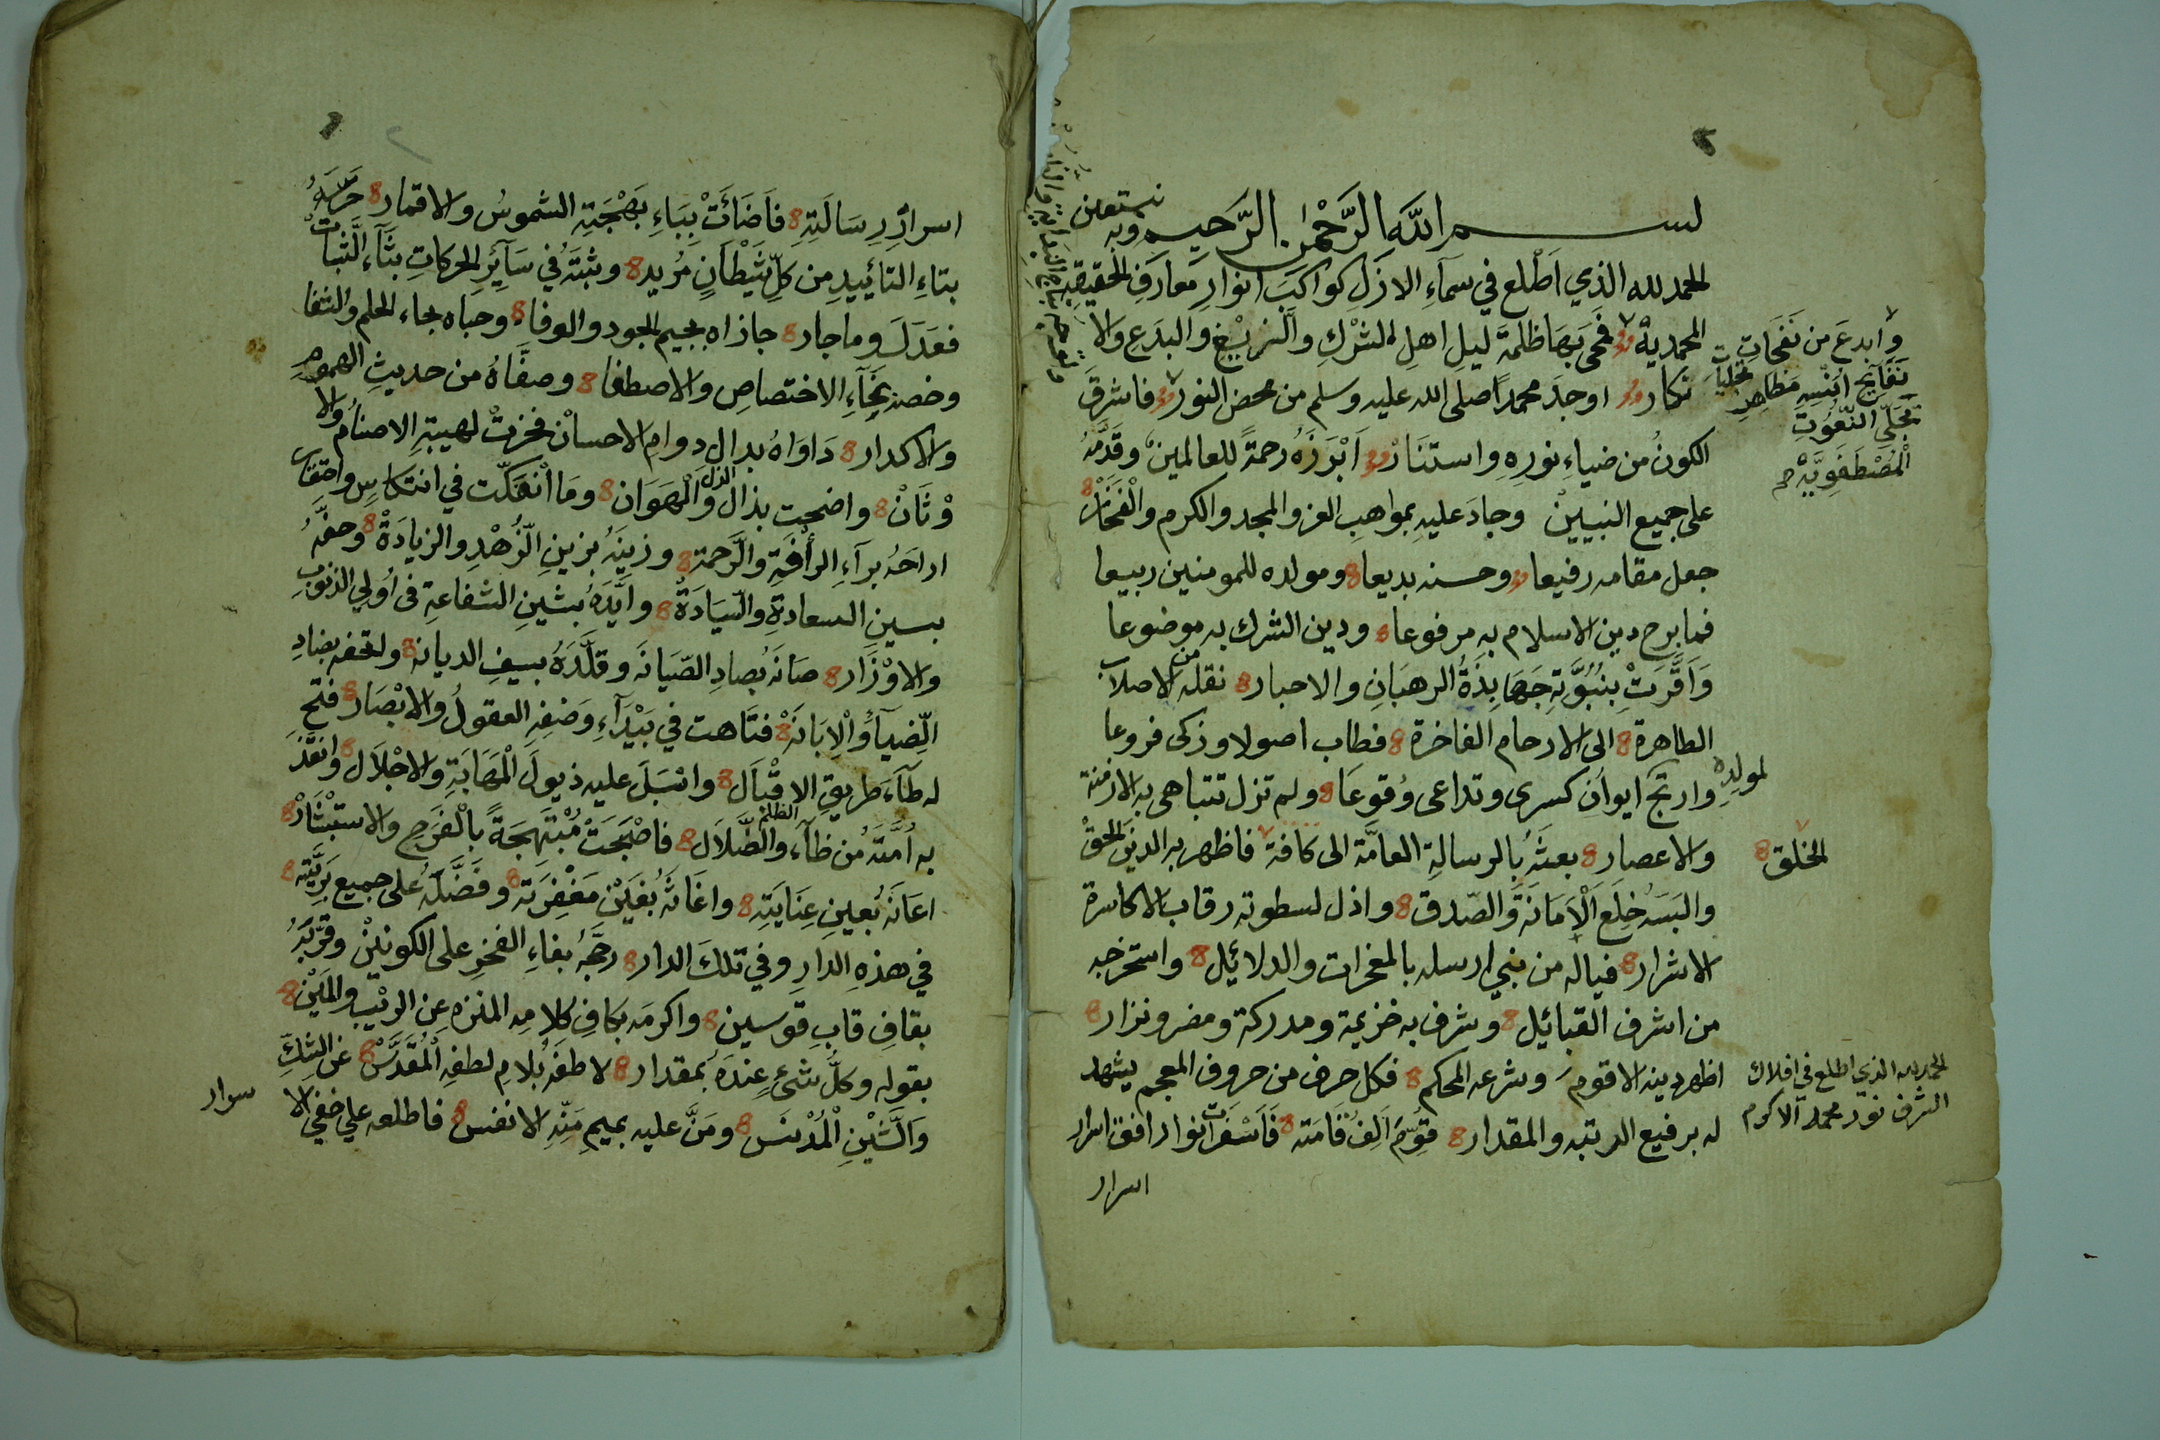 بسم الله الرَّحْمٰن الرَّحيم وبه نستعين
الحمد لله الذي اَطْلع في سمآءِ الازَلِ كواكبَ انوارِ مَعارَفِ الحقيقة
المحمدية فمحى بهَا ظلمَةَ ليلِ اهلِ الشرْكِ والَّزيْغ والبدَع والا
نكار اوجدَ محمداً صلى الله عليه وسلم من محض النور فاشرقَ
الكونُ من ضياءِ نورِهِ واستنَارْ اَبْرَزَهُ رحمةً للعالمينْ وقَدَّمَهُ
على جميع النبيينْ وجادَ عليهِ بمواهبِ العز والمجد والكرم والْفَخَارْ
جعل مقامه رفيعا وحسنه بديعا ومولده للمومنين ربيعا
فما برح دين الاسلام به مرفوعا ودين الشرك به موضوعا
وَاَقَّرتْ بنُبُوَّتِهِ جَهَابِذَةُ الرهبَانِ والاحبار نقله من الاصلاب
الطاهرة الى الارحام الفاخرة فطاب اصولا وزكى فروعا
وارتجَّ لمولدِهِ ايوانُ كسرى وتداعى وُقوعَا ولم تزل تتباهى به الازمنة
والاعصار بعثَهُ بالرسالةِ العامَّة الى كافة الخلق فاظهر به الدينَ الحقْ
والبَسَهُ خِلَع اَلْاَمَانَةِ والصّدق واذل لسطوته رقاب الاكاسرة
الاشرار فياله من نبي ارسله بالمعجزات والدلائِل واستخرجه
من اشرف القبائِل وشرف به خزيمة ومدركة ومضر ونزار
اظهر دينه الاقوم وشرعه المحكم فكل حرف من حروف المعجم يشهد
له برفيع الرتبه والمقدار قوَّمَ اَلِفُ قَامَته فَاَسْفَرَتْ انوار افق اسرار
اسرار
وابدعَ من نَفَحَاتِ
نَفَايِح اُنْسِهِ مَظاهِر تجليات
تَجَلِّي النّعُوتِ
الْمُصْطَفَوِيَّةْ صح
الخلق
الحمد لله الذي اطلع في افلاك
الشرف نور محمد الاكرم
اسرارِ رِسَالَتِهِ فاَضَائَتْ بِبَاءِ بَهْجَتِهِ الشموسُ والاقمار حَرَسَهُ
بتاءِ التأييدِ مِن كلِّ شَيْطَانٍ مُريد وثبتَهُ في سَآئِرِ الحركاتِ بثَآءِ الَّثبَاتْ
فعَدَلَ وما جار جاذاه بجيم الجود والوفاء وحباه بحاء الحلم والشفا
وخصه بخَآءِ الاختصاصِ والاصطفا وصفَّاهُ من حديثِ الهمومِ
والاكدار دَاوَاهُ بدالِ دوامِ الاحسانْ فخرتْ لهيبةِ الاصنامُ والا
وْثَانْ واضحت بذال الذل والْهَوَان ومَا اْنفكّت في انتكاسٍ واحتقار
اراحَهُ برآءِ الرأفَةِ والَّرحمة وزينَهُ بزينِ الّزُهْدِ والزيادَةْ وحفَّهُ
بسينِ السعادةِ والسّيَادَةْ وايَّدَهُ بشينِ الشفاعةِ في اُولي الذنوبِ
والاوْزَار صَانَهُ بصادِ الصّيَانَه وقلَّدَهُ بسيفِ الديانه واتحفه بضادِ
الّضِيآءِ والْاِبَانَهْ فتَاهت في بَيْدَآءِ وَصْفِهِ العقولُ والابْصَار فتح
له طآءَ طريقِ الاِقْبَال واسْبَلَ عليه ذيولَ الْمَهَابَةِ والاجْلَال وانقذ
به اُمَّتَهُ من ظآءِ الظلم والضَّلاَل فاصْبَحَتْ مُبْتَهِجَةً بالْفرَجِ والاستبْشَارْ
اعَانَهُ بعينِ عِنَايَتِهِ واغَاثَهُ بغَيْنِ مَغْفِرَتِه وفَضَّلَهُ على جميع بَرِيَّتِهِ
في هذهِ الدارِ وفي تلكَ الدار رجَّحَهُ بفاءِ الفخرِ على الكونينْ وقرَّبَهُ
بقافِ قابِ قوسين واكرمَه بكافِ كلامِه المنزه عن الريْبِ والمَيْنْ
بقوله وكلُّ شئٍ عِندَهُ بمقدار لاطفَهُ بلامِ لطفِهِ الْمُقَدَّسْ عن الشكِّ
وَالَّشَيْنِ الْمُدْنِسْ ومَنَّ عليه بميمِ مَنِّهِ الانفس فاطلعه على خفي الا
سرار